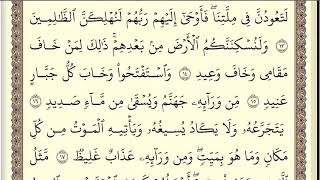 لَتَعُودُنَّ فِى مِلَّتِنَا ۖ فَأَوْحَىٰٓ إِلَيْهِمْ رَبُّهُمْ لَنُهْلِكَنَّ ٱلظَّٰلِمِينَ
١٣ وَلَنُسْكِنَنَّكُمُ ٱلْأَرْضَ مِنۢ بَعْدِهِمْ ۚ ذَٰلِكَ لِمَنْ خَافَ
مَقَامِى وَخَافَ وَعِيدِ ١٤ وَٱسْتَفْتَحُوا۟ وَخَابَ كُلُّ جَبَّارٍ
عَنِيدٍ ١٥ مِّن وَرَآئِهِۦ جَهَنَّمُ وَيُسْقَىٰ مِن مَّآءٍ صَدِيدٍ ١٦
يَتَجَرَّعُهُۥ وَلَا يَكَادُ يُسِيغُهُۥ وَيَأْتِيهِ ٱلْمَوْتُ مِن كُلِّ
مَكَانٍ وَمَا هُوَ بِمَيِّتٍ ۖ وَمِن وَرَآئِهِۦ عَذَابٌ غَلِيظٌ ١٧ مَّثَلُ